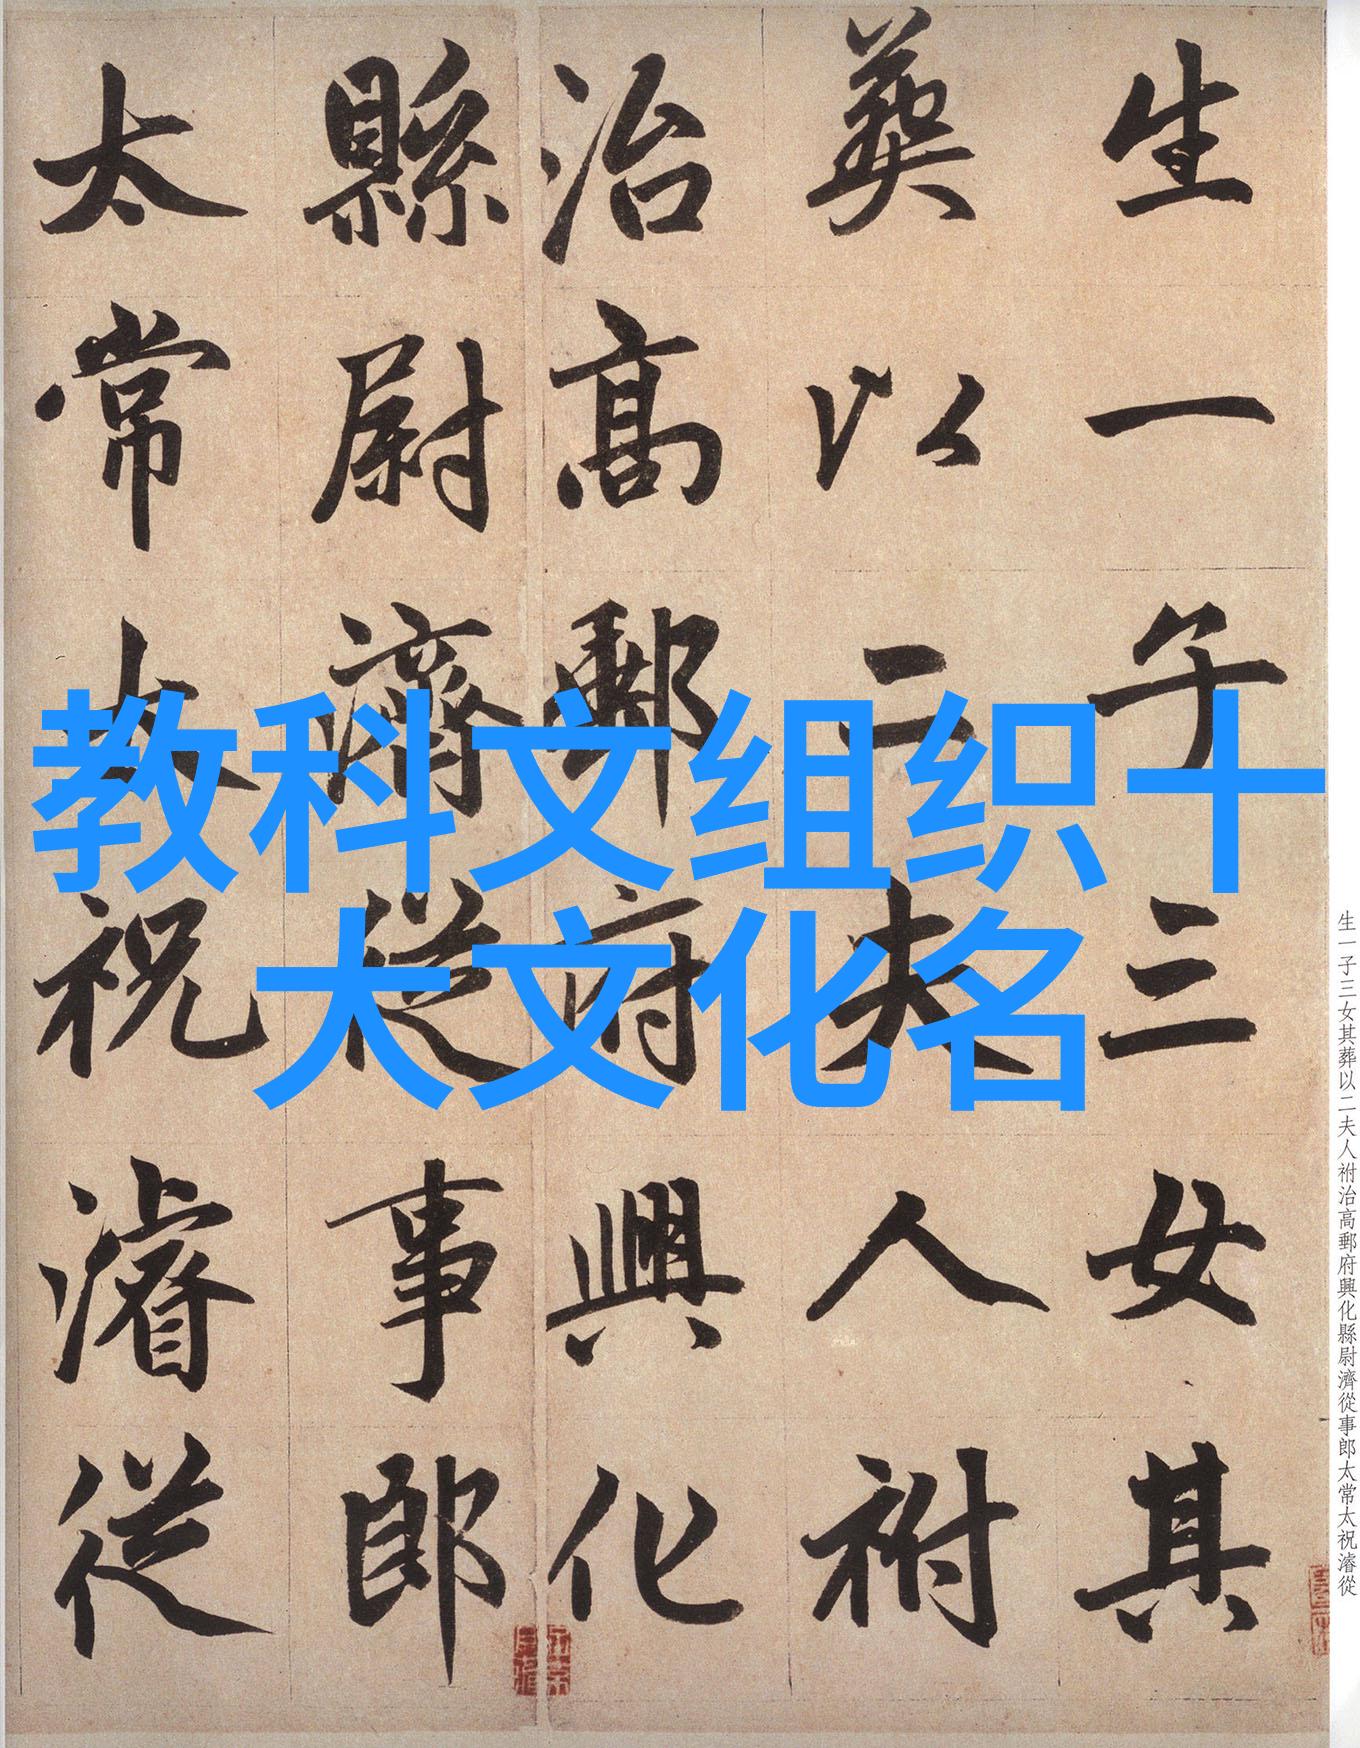 教科文组织十
大文化名
生一子三女其
葬以二夫人祔
治高郵府興化
縣尉濟從事郎
太常太祝濬從
生一子三女其葬以二夫人祔治高郵府興化縣尉濟從事郎太常太祝濬從